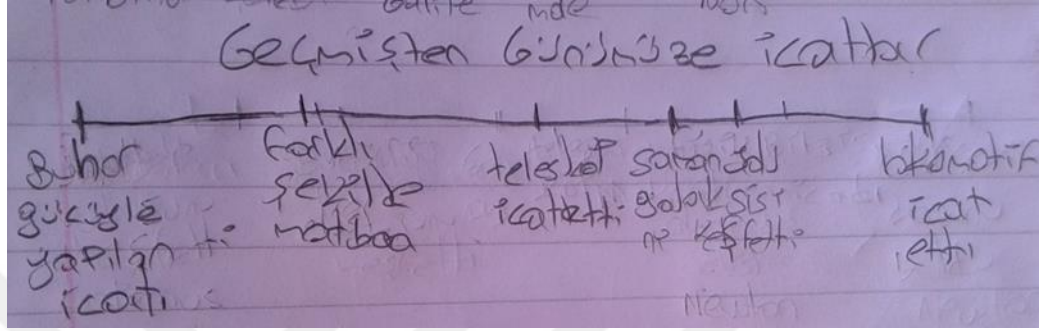 Geçmişten Günümüze icatlar
Buhar
gücüyle
yapılan
icatı
farklı
şekilde
matbaa
teleskop
icatetti
samanyolu
galaksisi
ni keşfetti
lokomotif
icat
etti
Newton